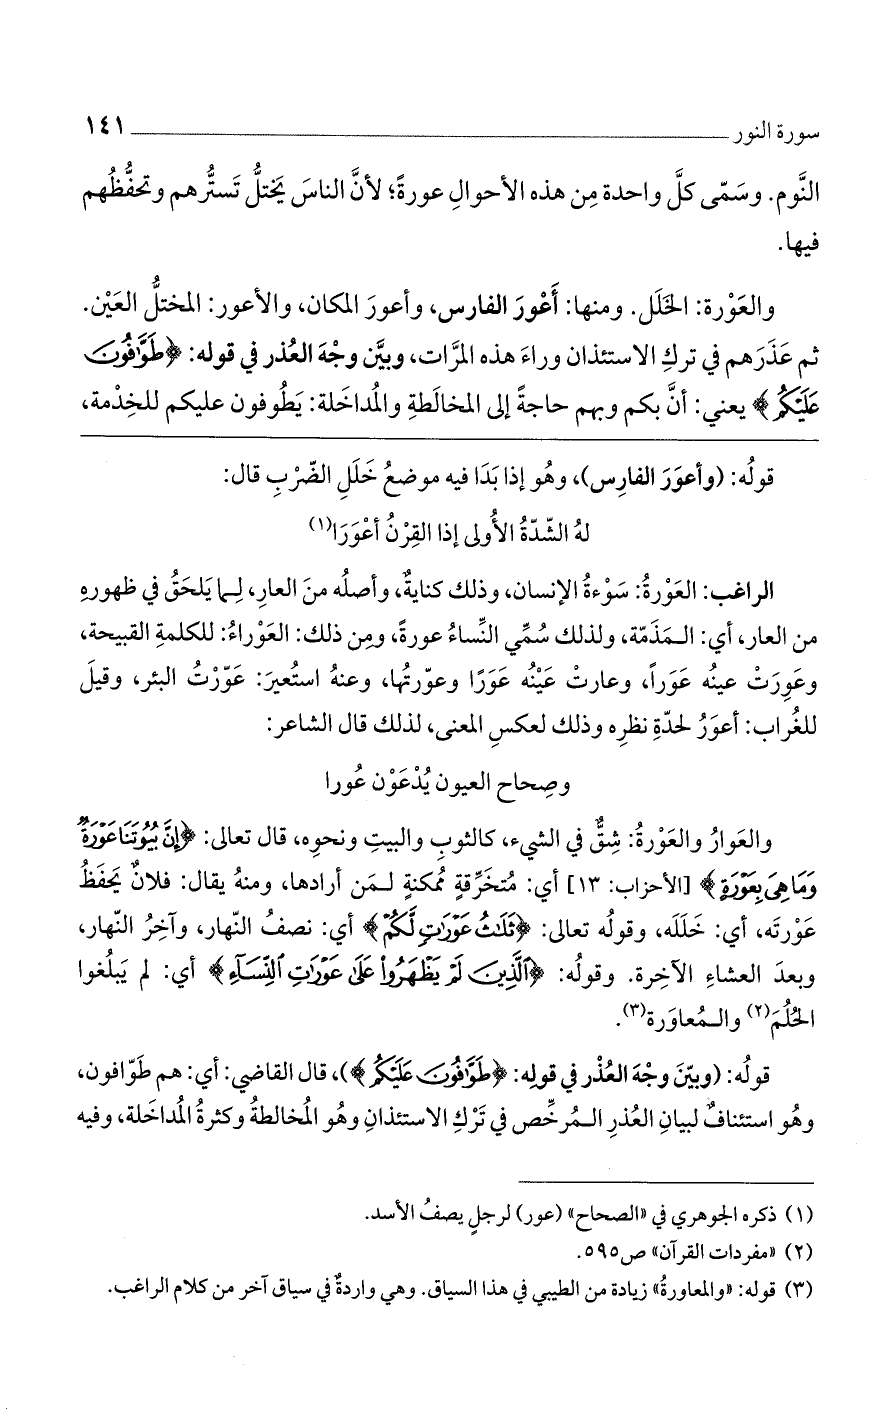 سورة النور ١٤١
النَّوم. وسَمّى كلَّ واحدة مِن هذه الأحوالِ عورةً؛ لأنَّ الناسَ يَختلُّ تَستُّرهم وتحفُّظُهم
فيها.
والعَوْرة: الخَلَل. ومنها: أَعْورَ الفارس، وأعورَ المكان، والأعور: المختلُّ العَيْن.
ثم عَذَرَهم في تركِ الاستئذان وراءَ هذه المرَّات، وبيَّن وجْهَ العُذر في قوله: ﴿طَوَّٰفُونَ
عَلَيْكُم﴾ يعني: أنَّ بكم وبهم حاجةً إلى المخالَطةِ والمُداخَلة: يَطُوفون عليكم للخِدْمة،
قولُه: (وأعوَرَ الفارِس)، وهُو إذا بَدَا فيه موضعُ خَلَلِ الضّرْبِ قال:
لهُ الشّدّةُ الأُولى إذا القِرْنُ أعْوَرَا(١)
الراغب: العَوْرةُ: سَوْءةُ الإنسان، وذلك كنايةٌ، وأصلُه منَ العارِ، لِما يَلحَقُ في ظهورهِ
من العار، أي: المَذمّة، ولذلك سُمِّي النِّساءُ عورةً، ومِن ذلك: العَوْراءُ: للكلمةِ القبيحة،
وعَوِرَتْ عينُه عَوَراً، وعارتْ عَيْنُه عَوَرًا وعوّرتُها، وعنهُ استُعيرَ: عَوّرْتُ البئر، وقيلَ
للغُراب: أعوَرُ لحدّةِ نظرِه وذلك لعكسِ المعنى، لذلك قال الشاعر:
وصِحاح العيون يُدْعَوْن عُورا
والعَوارُ والعَوْرةُ: شِقٌّ في الشيء، كالثوبِ والبيتِ ونحوِه، قال تعالى: ﴿إِنَّ بُيُوتَنَا عَوْرَةٌ
وَمَا هِيَ بِعَوْرَةٍ﴾ [الأحزاب: ١٣] أي: مُتخَرِّقةٍ مُمكنةٍ لمَن أرادها، ومنهُ يقال: فلانٌ يَحفَظُ
عَوْرتَه، أي: خَلَلَه، وقولُه تعالى: ﴿ثَلَٰثُ عَوْرَٰتٍ لَّكُمْ﴾ أي: نصفُ النّهار، وآخِرُ النّهار،
وبعدَ العشاءِ الآخِرة. وقولُه: ﴿ٱلَّذِينَ لَمْ يَظْهَرُوا۟ عَلَىٰ عَوْرَٰتِ ٱلنِّسَآءِ﴾ أي: لم يَبلُغوا
الحُلُمَ(٢) والمُعاوَرة(٣).
قولُه: (وبيّنَ وجْهَ العُذْر في قولِه: ﴿طَوَّٰفُونَ عَلَيْكُم﴾)، قال القاضي: أي: هم طَوّافون،
وهُو استئنافٌ لبيانِ العُذرِ المُرخِّص في تَرْكِ الاستئذانِ وهُو المُخالطةُ وكثرةُ المُداخَلة، وفيه
(١) ذكره الجوهري في «الصحاح» (عور) لرجلٍ يصفُ الأسد.
(٢) «مفردات القرآن» ص٥٩٥.
(٣) قوله: «والمعاورةُ» زيادة من الطيبي في هذا السياق. وهي واردةٌ في سياق آخر من كلام الراغب.